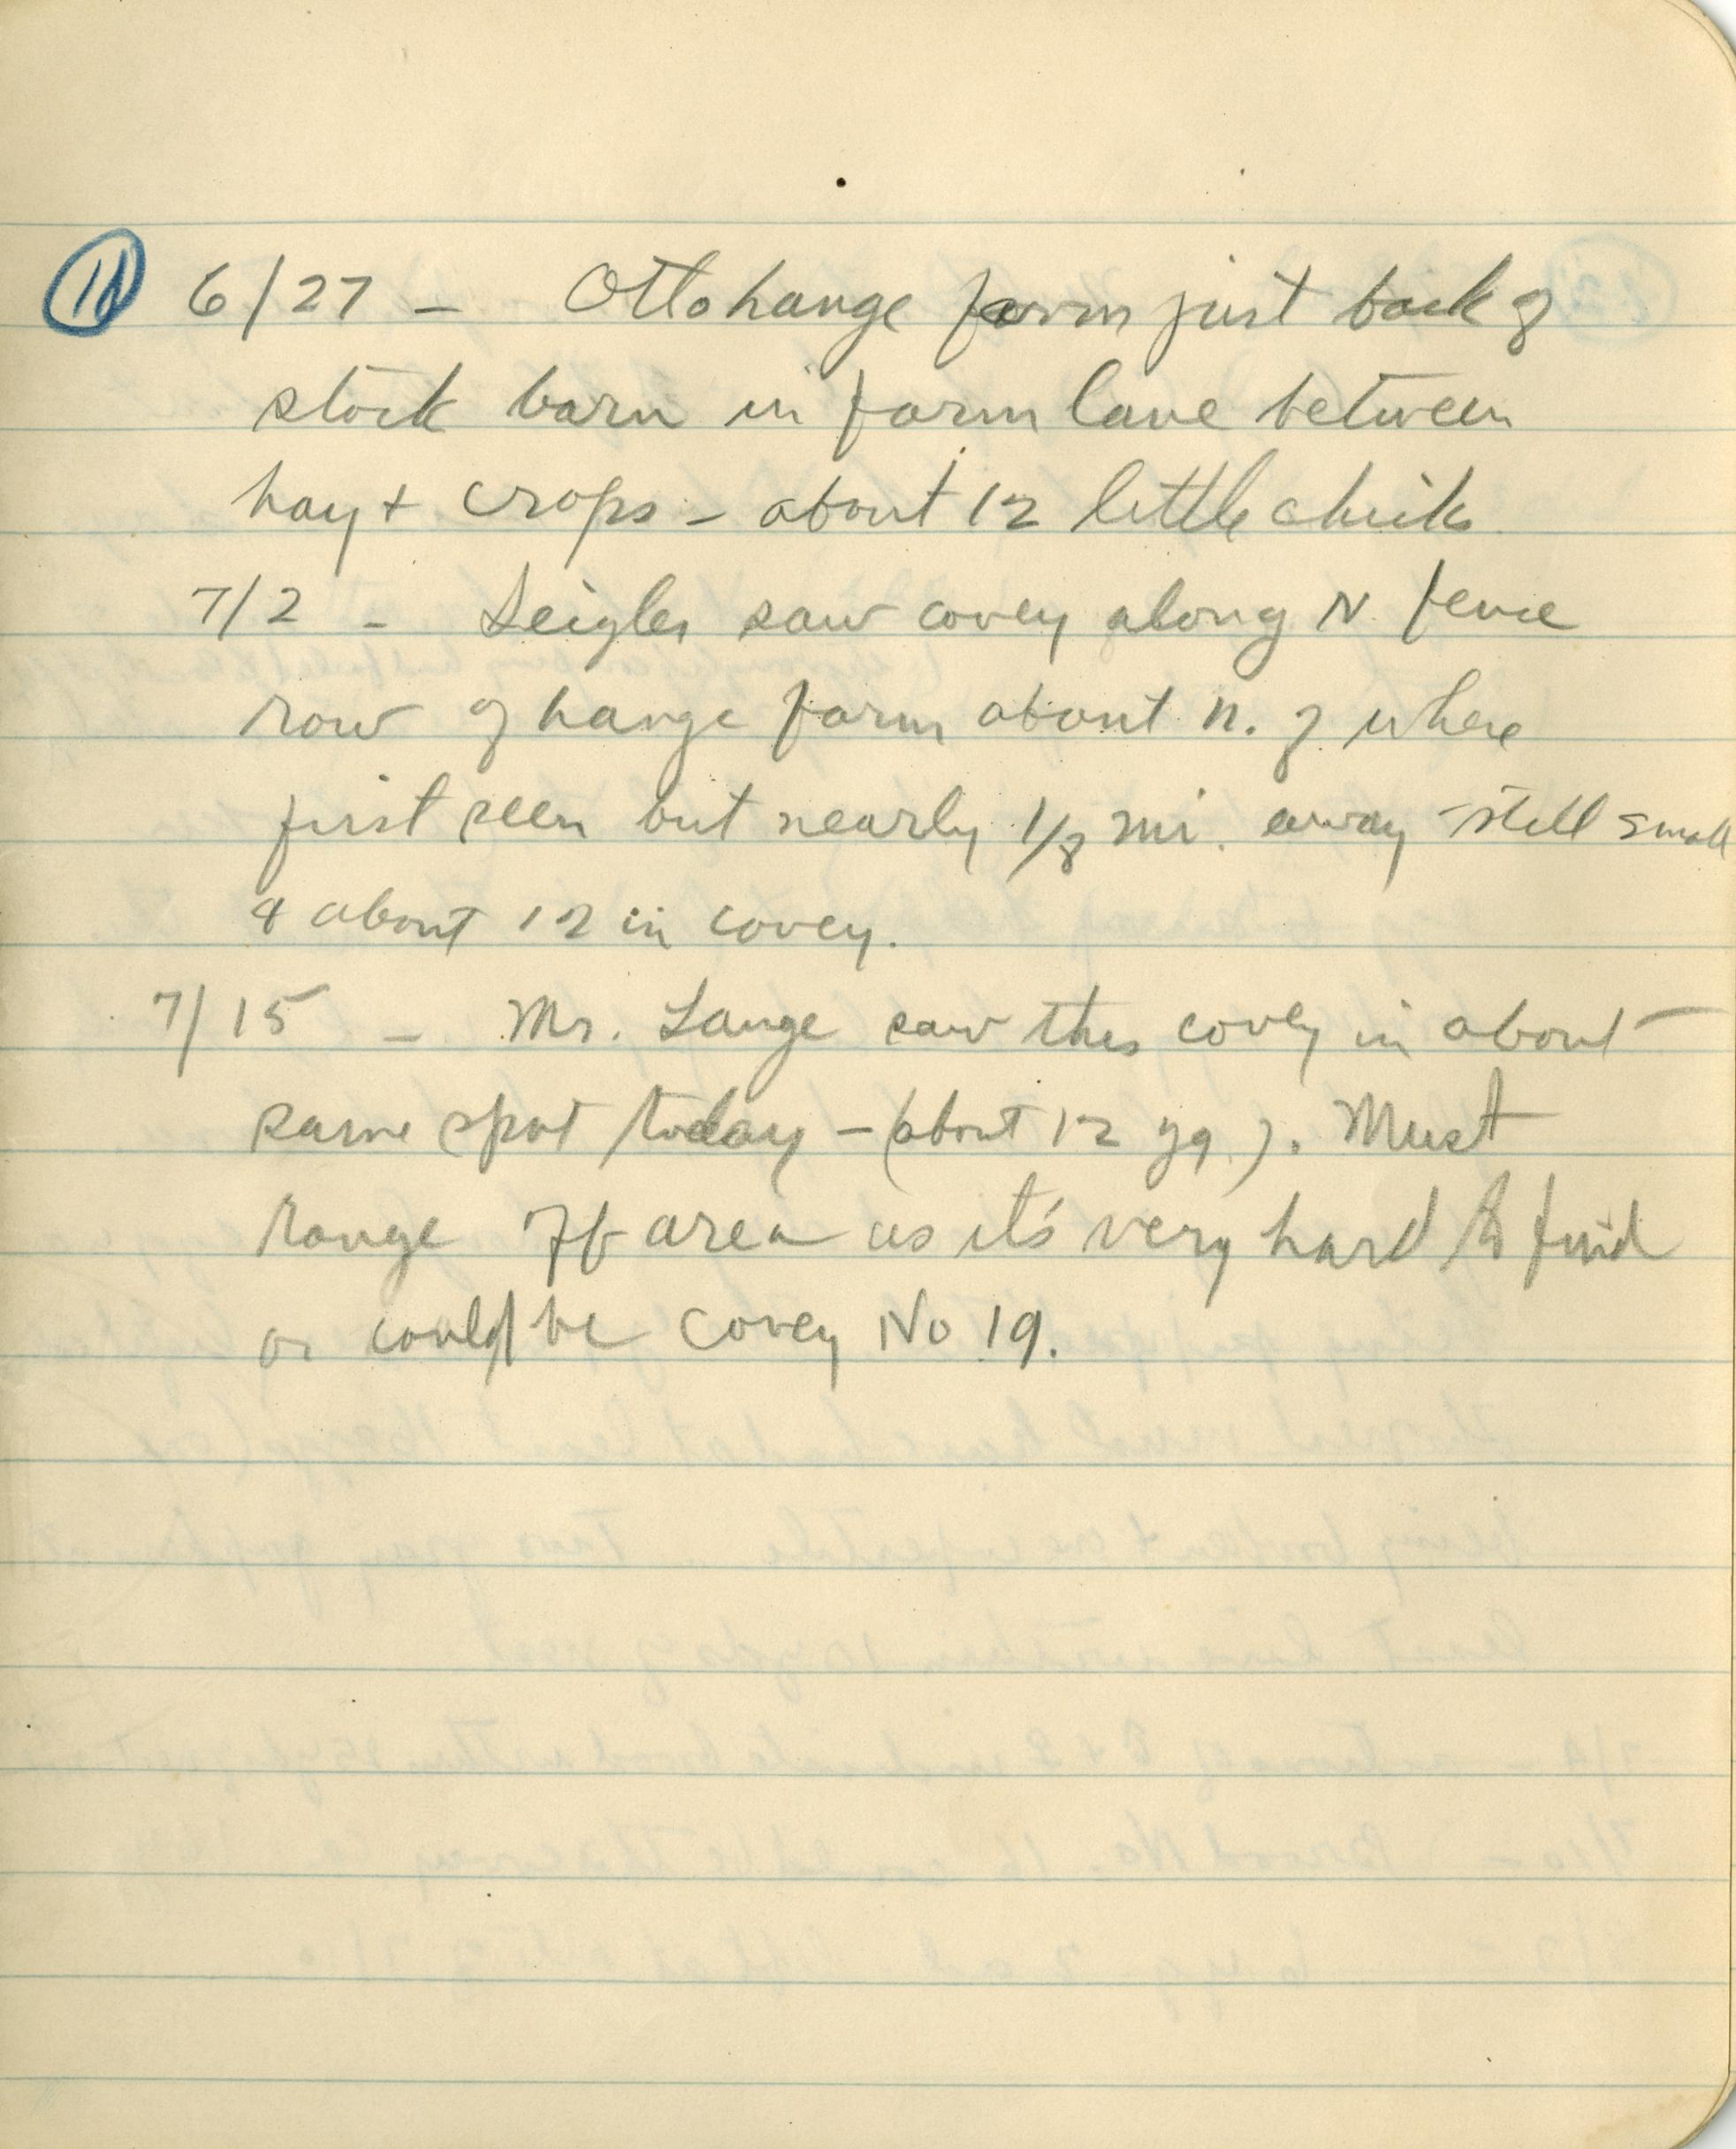 6/27 - Otto Lange farm just back of
stock barn in farm lane between
hay + crops - about 12 little chicks
7/2 - Seigler saw covey along N. fence
row of Lange farm about n. of where
first seen but nearly 1/8 mi. away - still small
& about 12 in covey.
7/15 - Mr. Lange saw this covey in about
same spot today - (about 12 yg.). Must
range off area as it's very hard to find
or could be covey No 19.